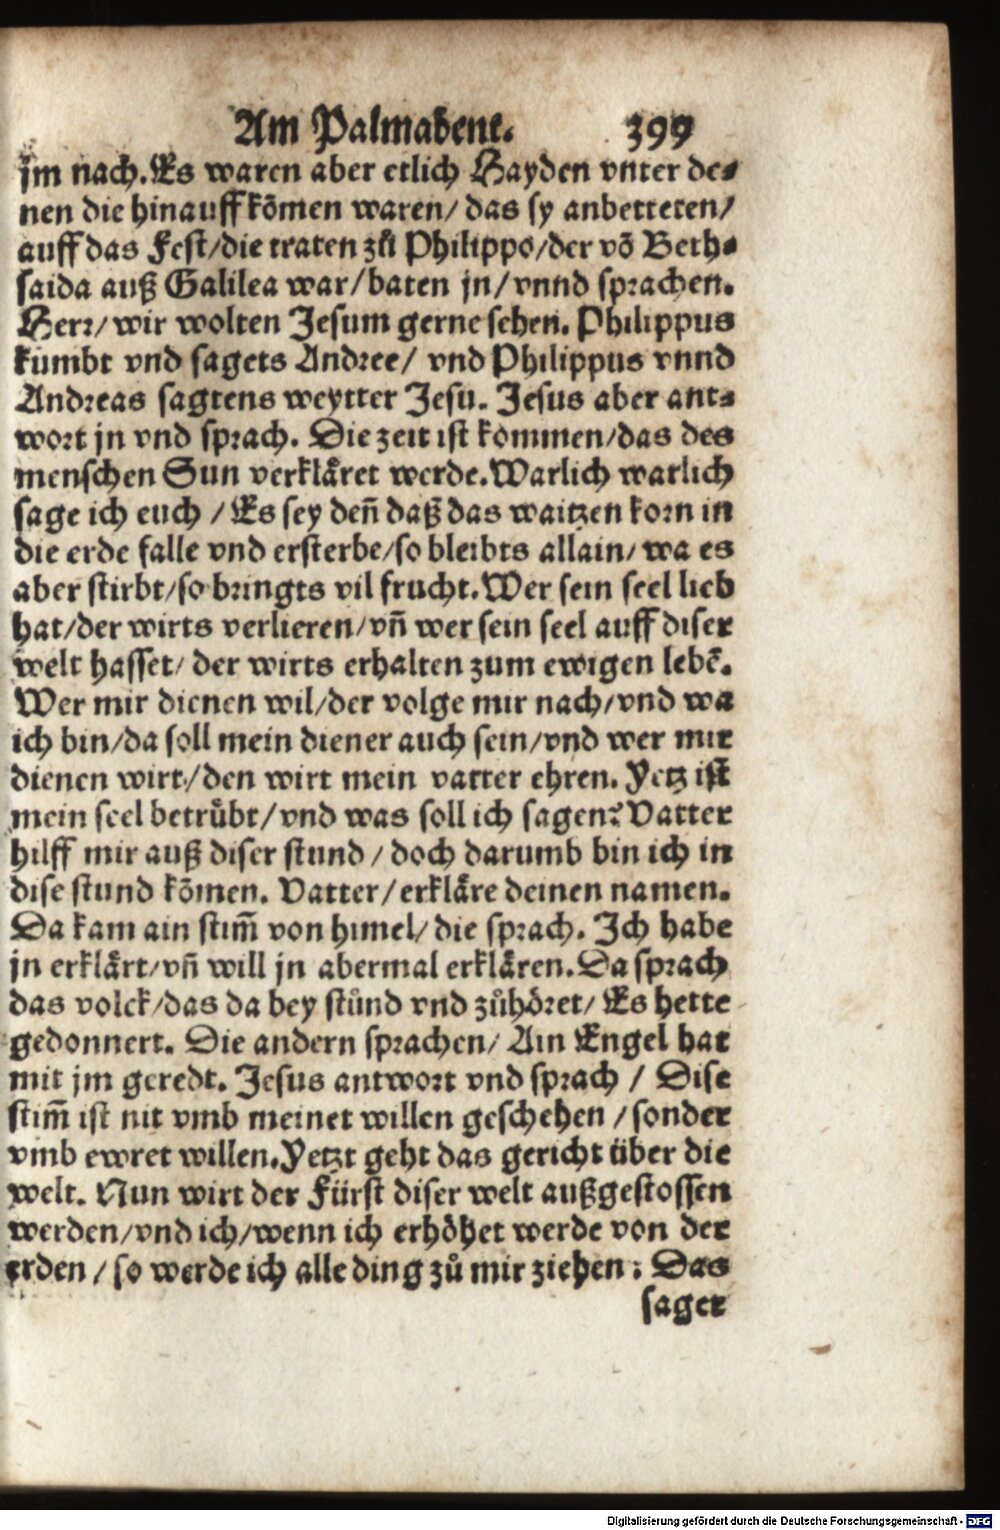 Am Palmabent. 399
jm nach. Es waren aber etlich Hayden vnter de⸗
nen die hinauff kōmen waren/ das sy anbetteten/
auff das Fest/ die traten zů Philippo/ der vō Beth⸗
saida auß Galilea war/ baten jn/ vnnd sprachen.
Herr/ wir wolten Jesum gerne sehen. Philippus
kumbt vnd sagets Andree/ vnd Philippus vnnd
Andreas sagtens weytter Jesu. Jesus aber ant⸗
wort jn vnd sprach. Die zeit ist kommen/ das des
menschen Sun verkläret werde. Warlich warlich
sage ich euch / Es sey deñ daß das waitzen korn in
die erde falle vnd ersterbe/ so bleibts allain/ wa es
aber stirbt/ so bringts vil frucht. Wer sein seel lieb
hat/ der wirts verlieren/ vñ wer sein seel auff diser
welt hasset/ der wirts erhalten zum ewigen lebē.
Wer mir dienen wil/ der volge mir nach/ vnd wa
ich bin/ da soll mein diener auch sein/ vnd wer mir
dienen wirt/ den wirt mein vatter ehren. Yetz ist
mein seel betrůbt/ vnd was soll ich sagen? Vatter
hilff mir auß diser stund / doch darumb bin ich in
dise stund kōmen. Vatter/ erkläre deinen namen.
Da kam ain stim̃ von himel/ die sprach. Ich habe
jn erklärt/ vñ will jn abermal erklären. Da sprach
das volck/ das da bey stůnd vnd zůhöret/ Es hette
gedonnert. Die andern sprachen/ Ain Engel hat
mit jm geredt. Jesus antwort vnd sprach / Dise
stim̃ ist nit vmb meinet willen geschehen / sonder
vmb ewret willen. Yetzt geht das gericht über die
welt. Nun wirt der Fürst diser welt außgestossen
werden/ vnd ich/ wenn ich erhöhet werde von der
erden / so werde ich alle ding zů mir ziehen: Das
saget
Digitalisierung gefördert durch die Deutsche Forschungsgemeinschaft - DFG